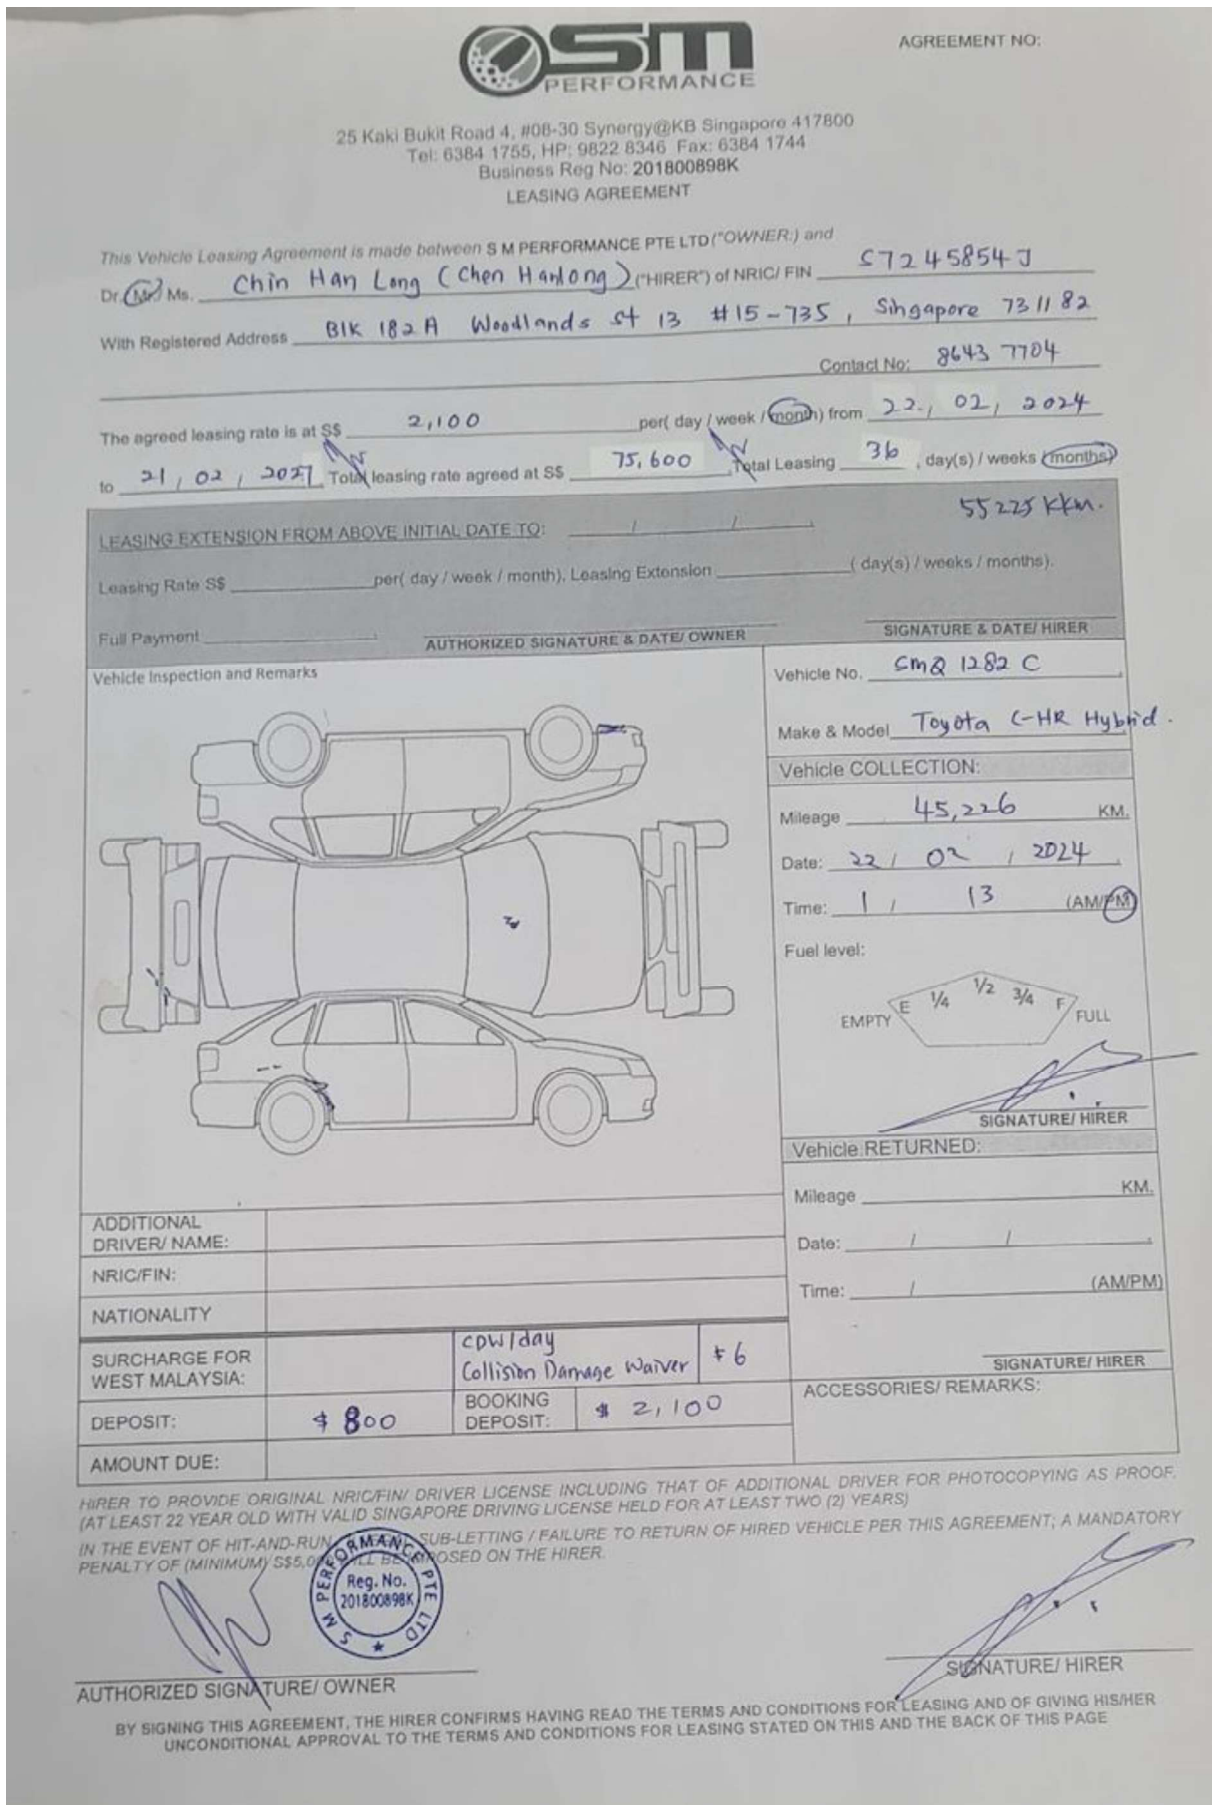 SM
PERFORMANCE
AGREEMENT NO:
25 Kaki Bukit Road 4, #08-30 Synergy@KB Singapore 417800
Tel: 6384 1755, HP: 9822 8346 Fax: 6384 1744
Business Reg No: 201800898K
LEASING AGREEMENT
This Vehicle Leasing Agreement is made between S M PERFORMANCE PTE LTD ("OWNER:) and
Dr. Mr/ Ms. Chin Han Long (Chen Hanlong) ("HIRER") of NRIC/ FIN S7245854J
With Registered Address Blk 182A Woodlands St 13 #15-735, Singapore 731182
Contact No: 8643 7704
The agreed leasing rate is at S$ 2,100 per( day / week / month) from 22, 02, 2024
to 21 / 02 / 2027 Total leasing rate agreed at S$ 75,600 Total Leasing 36, day(s) / weeks (months)
55225 KKm.
LEASING EXTENSION FROM ABOVE INITIAL DATE TO: / /
Leasing Rate S$ per( day / week / month), Leasing Extension ( day(s) / weeks / months).
Full Payment
AUTHORIZED SIGNATURE & DATE/ OWNER
SIGNATURE & DATE/ HIRER
Vehicle Inspection and Remarks
Vehicle No. SMQ 1282 C
Make & Model Toyota C-HR Hybrid.
Vehicle COLLECTION:
Mileage 45,226 KM.
Date: 22 / 02 / 2024
Time: 1 / 13 (AM/PM)
Fuel level:
EMPTY E 1/4 1/2 3/4 F FULL
SIGNATURE/ HIRER
Vehicle RETURNED:
Mileage KM.
Date: / /
Time: / (AM/PM)
SIGNATURE/ HIRER
ACCESSORIES/ REMARKS:
ADDITIONAL
DRIVER/ NAME:
NRIC/FIN:
NATIONALITY
SURCHARGE FOR
WEST MALAYSIA:
CDW/day
Collision Damage Waiver $6
DEPOSIT: $800
BOOKING
DEPOSIT: $ 2,100
AMOUNT DUE:
HIRER TO PROVIDE ORIGINAL NRIC/FIN/ DRIVER LICENSE INCLUDING THAT OF ADDITIONAL DRIVER FOR PHOTOCOPYING AS PROOF.
(AT LEAST 22 YEAR OLD WITH VALID SINGAPORE DRIVING LICENSE HELD FOR AT LEAST TWO (2) YEARS)
IN THE EVENT OF HIT-AND-RUN SUB-LETTING / FAILURE TO RETURN OF HIRED VEHICLE PER THIS AGREEMENT; A MANDATORY
PENALTY OF (MINIMUM) S$5,0 BE IMPOSED ON THE HIRER.
S M PERFORMANCE PTE LTD
Reg. No.
201800898K
AUTHORIZED SIGNATURE/ OWNER
SIGNATURE/ HIRER
BY SIGNING THIS AGREEMENT, THE HIRER CONFIRMS HAVING READ THE TERMS AND CONDITIONS FOR LEASING AND OF GIVING HIS/HER
UNCONDITIONAL APPROVAL TO THE TERMS AND CONDITIONS FOR LEASING STATED ON THIS AND THE BACK OF THIS PAGE